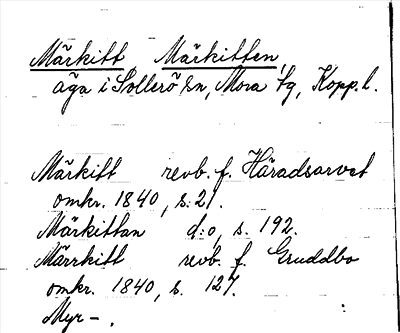 Märkitt, Märkitten,
äga i Sollerö sn, Mora tg, Kopp. l.
Märkitt revb. f. Häradsarvet
omkr. 1840, s. 21.
Märkittan d:o, s. 192.
Märrkitt revb. f. Gruddbo
omkr. 1840, s. 127.
Myr – .